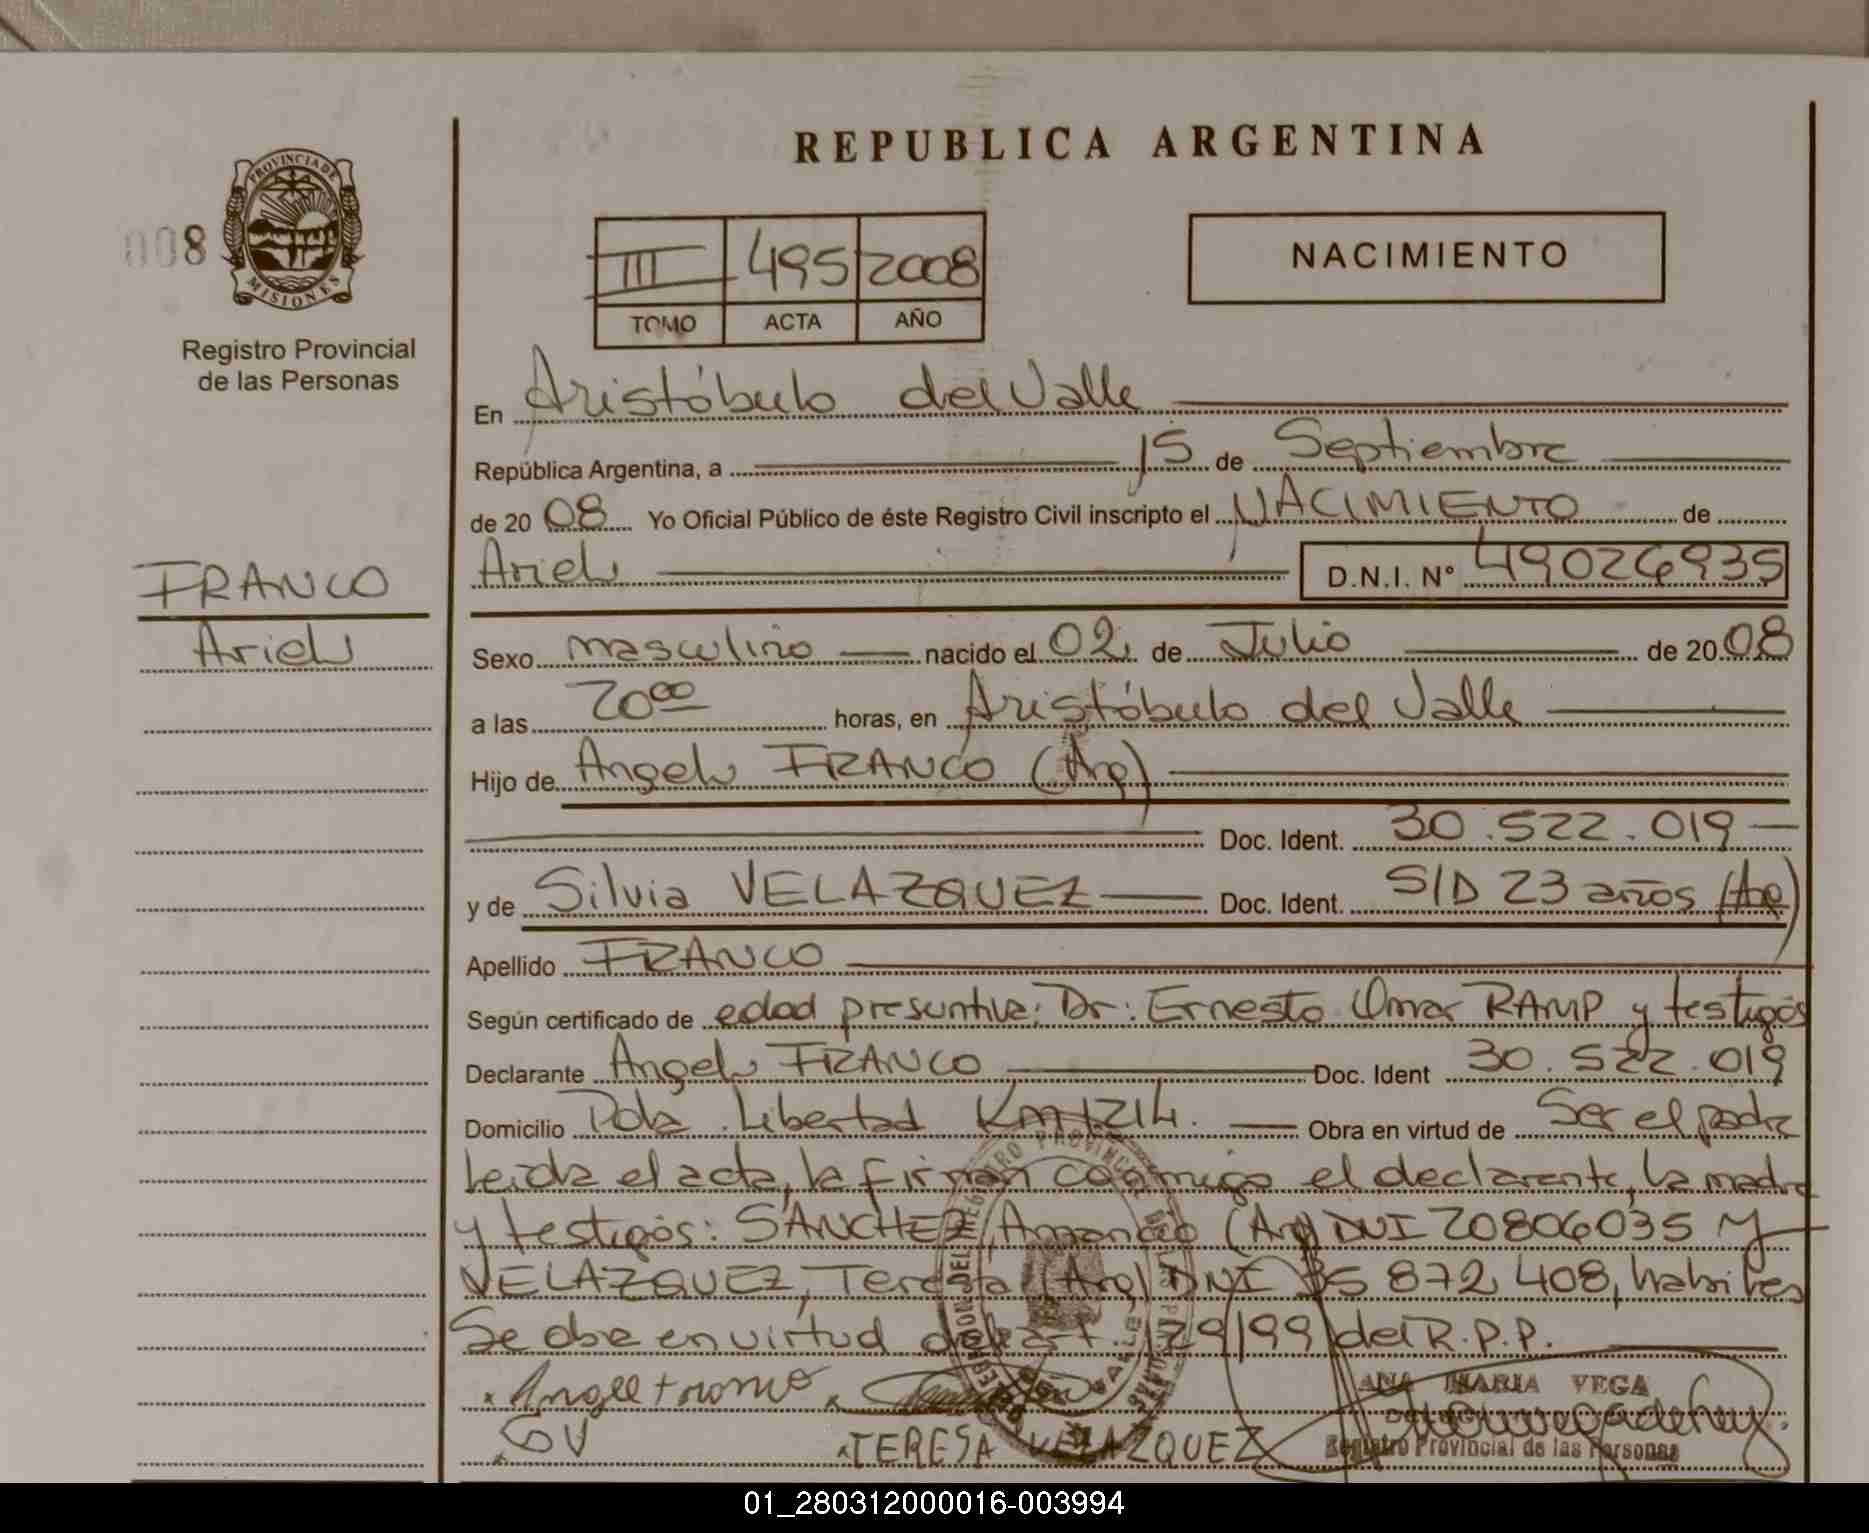 REPUBLICA ARGENTINA
PROVINCIA DE
MISIONES
008
Registro Provincial
de las Personas
III 495 2008
TOMO ACTA AÑO
NACIMIENTO
En Aristóbulo del Valle
República Argentina, a 15 de Septiembre
de 20 08 Yo Oficial Público de éste Registro Civil inscripto el NACIMIENTO de
FRANCO
Ariel
Ariel D.N.I. N° 49026935
Sexo masculino nacido el 02 de Julio de 20 08
a las 20 00 horas, en Aristóbulo del Valle
Hijo de Angel FRANCO (Arg)
Doc. Ident. 30.522.019
y de Silvia VELAZQUEZ Doc. Ident. S/D 23 años (Arg)
Apellido FRANCO
Según certificado de edad presuntiva: Dr: Ernesto Omar RAMP y testigos
Declarante Angel FRANCO Doc. Ident 30.522.019
Domicilio Pdta Libertad Km 1214. Obra en virtud de Ser el padre
Leida el acta, la firman conmigo el declarante, la madre
y testigos: SANCHEZ, Amancio (Arg) DNI 20806035 y
VELAZQUEZ, Teresa (Arg) DNI 35 872 408, habiles
Se obra en virtud del art. 29/99 del R.P.P.
SV
TERESA VELAZQUEZ
ANA MARIA VEGA
Registro Provincial de las Personas
01_280312000016-003994